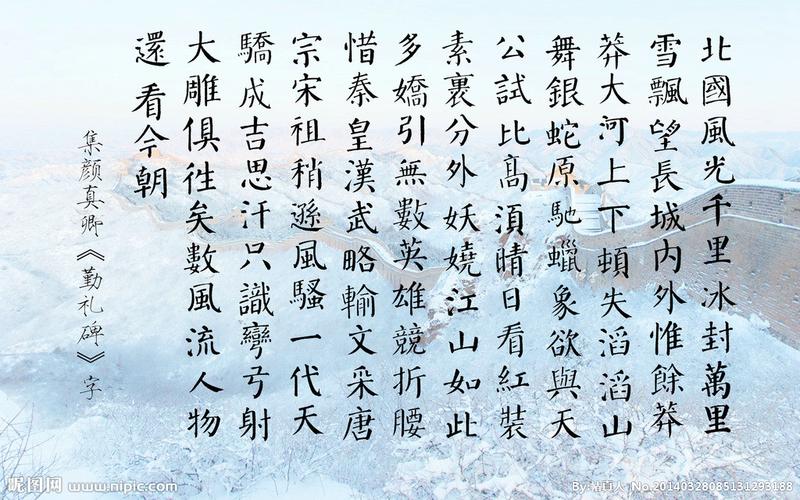 北國風光千里冰封萬里
雪飄望長城內外惟餘莽
莽大河上下頓失滔滔山
舞銀蛇原馳蠟象欲與天
公試比髙湏晴日看紅裝
素裹分外妖嬈江山如此
多嬌引無數英雄競折腰
惜秦皇漢武略輸文采唐
宗宋祖稍遜風騷一代天
驕成吉思汗只識彎弓射
大雕俱往矣數風流人物
還看今朝
集颜真卿《勤礼碑》字
昵图网 www.nipic.com
By: No.20140328085131293188